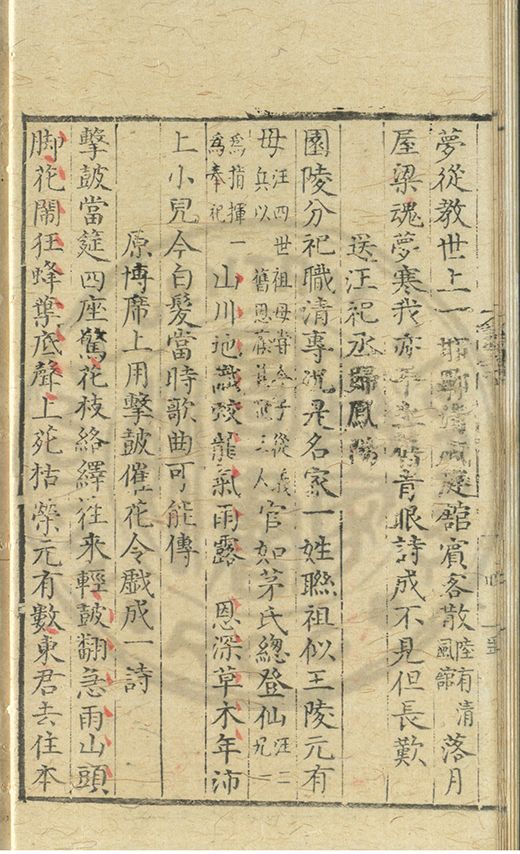 夢從教世上一風庭館賓客散陸有清風館落月
屋梁魂夢寒我亦平生青眼詩成不見但長歎
送汪祀丞歸鳳陽
園陵分祀職清專況是名家一姓聯祖似王陵元有
母汪四世祖母嘗令子從義兵以舊恩三人官如茅氏總登仙汪二兄一
為指揮一為奉祀山川地藏蛟龍氣雨露 恩深草木年沛
上小兒今白髮當時歌曲可能傳
原博席上用擊鼓催花令戲成一詩
擊鼓當筵四座驚花枝絡繹往來輕鼓翻急雨山頭
脚花鬧狂蜂葉底聲上苑枯榮元有數東君去住本